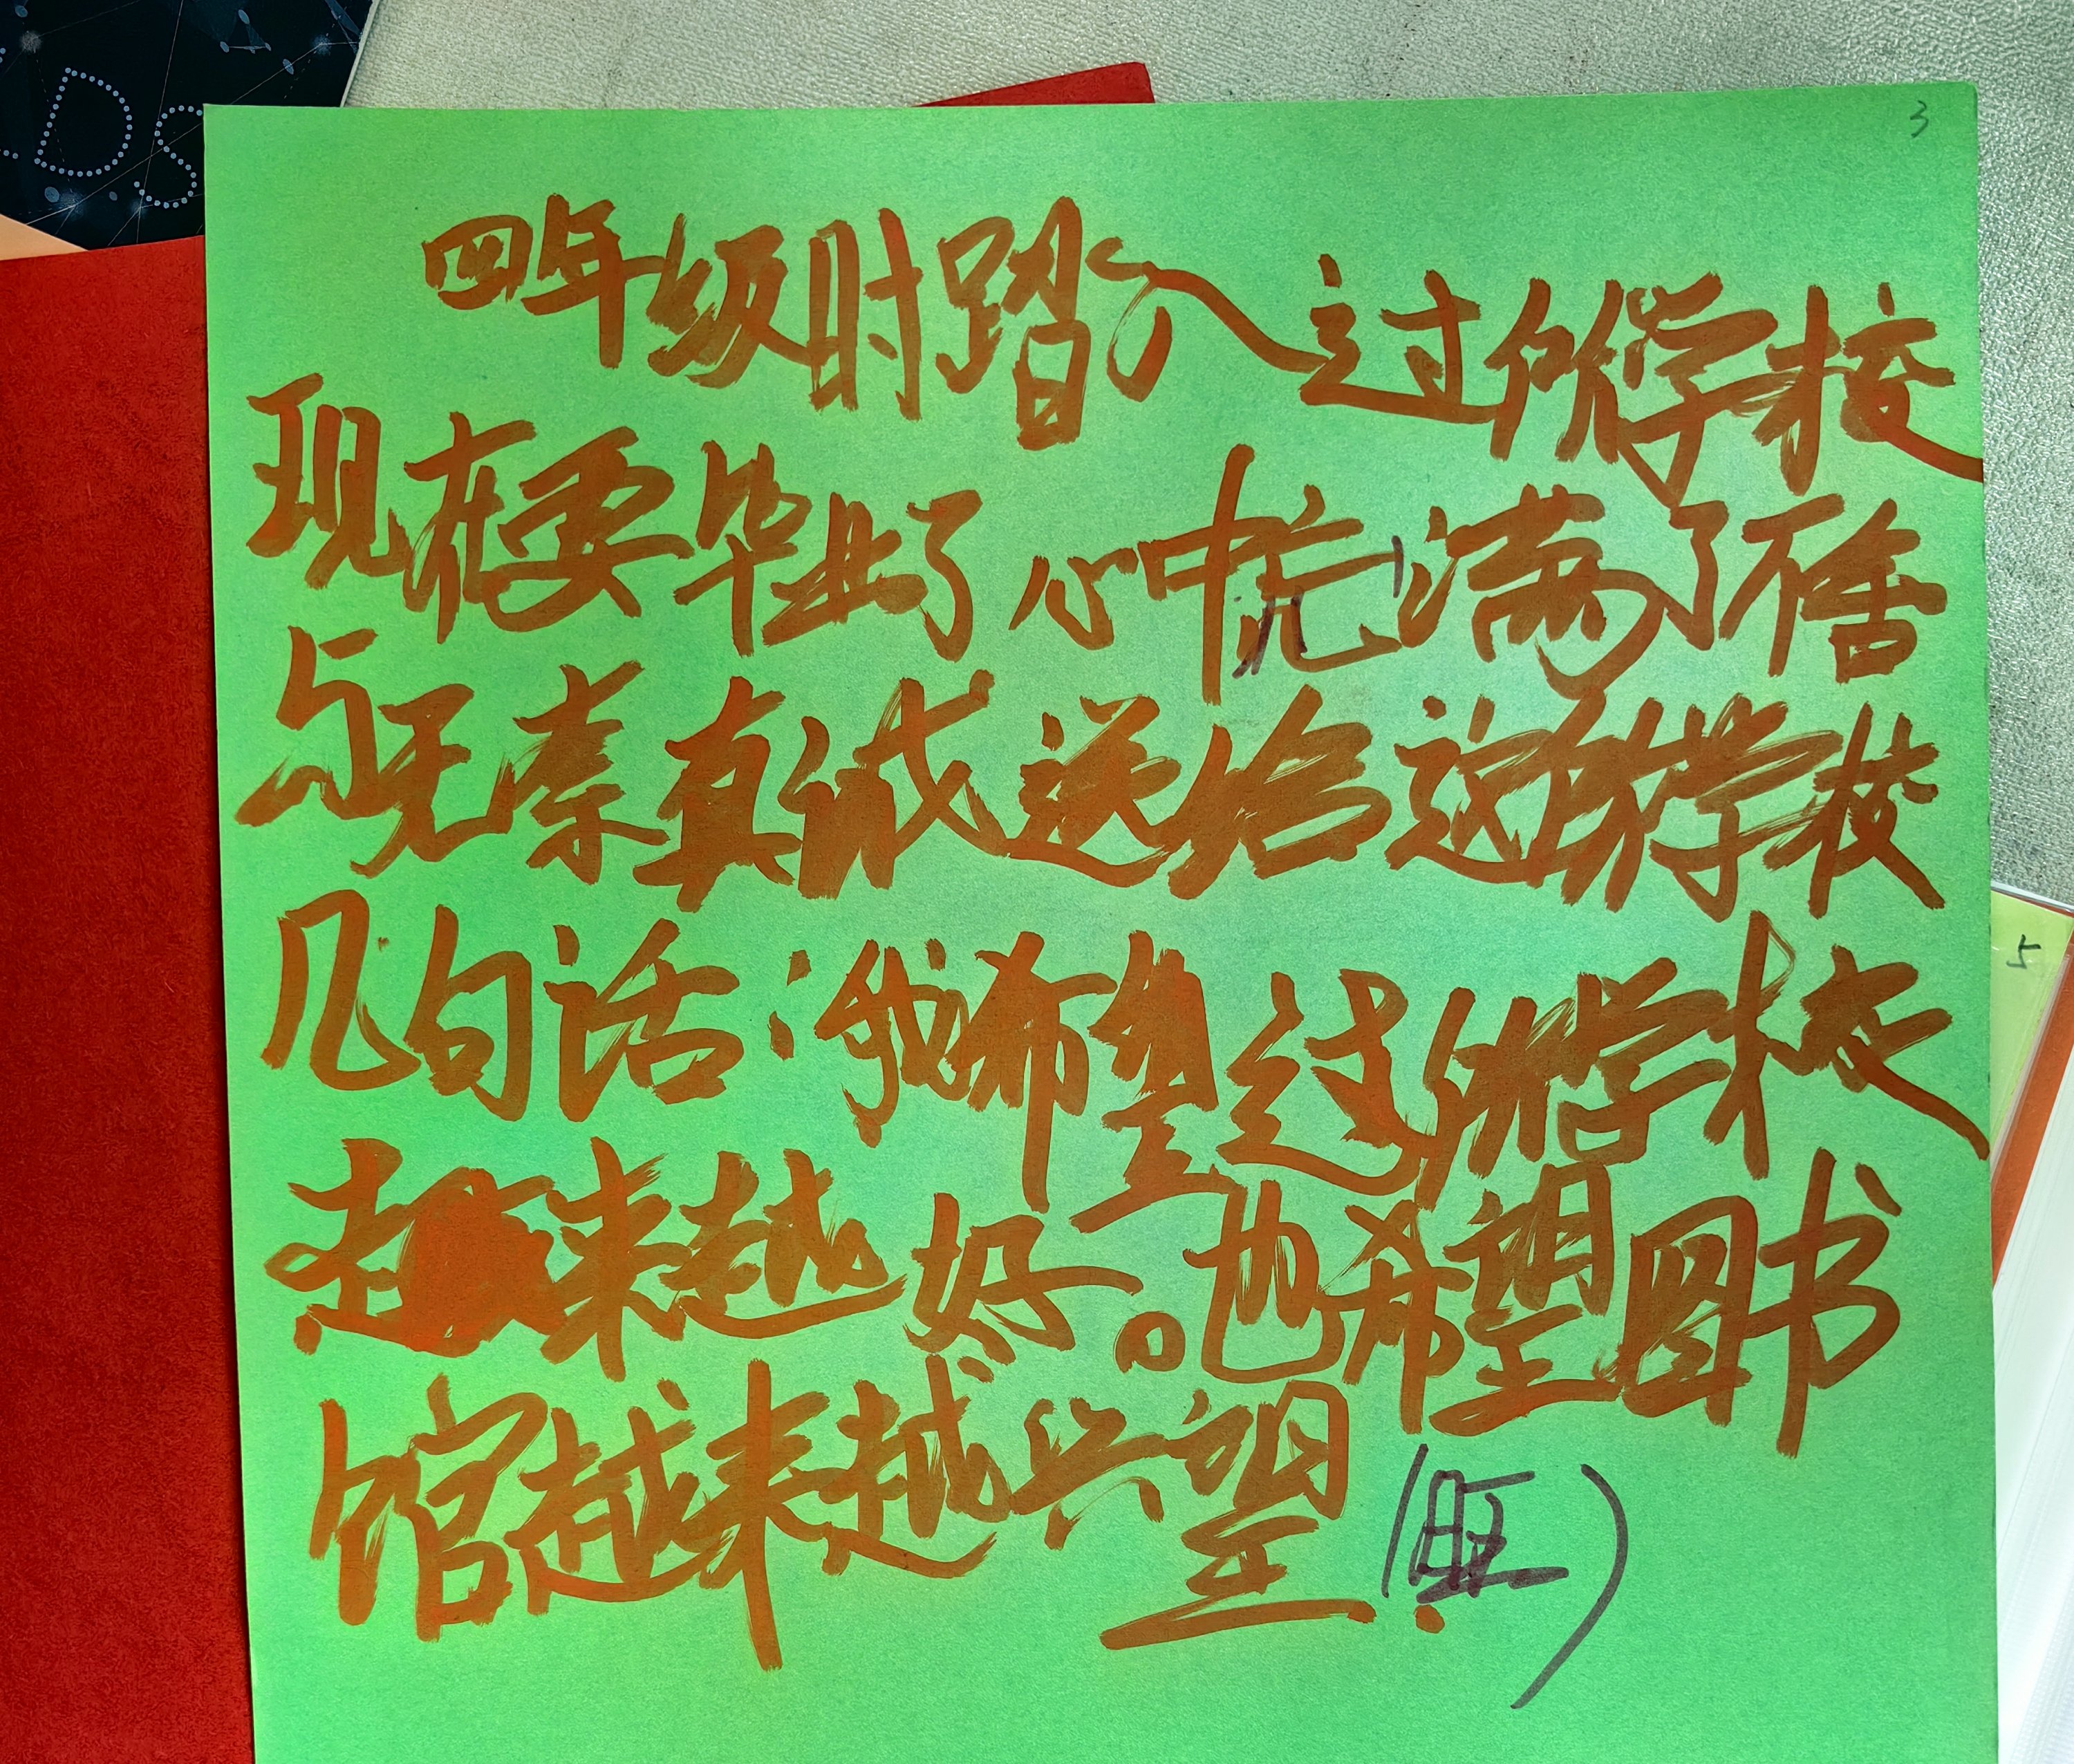 DS
3
四年级时踏入过所学校
现在要毕业了心中充满了不舍
与无奈真诚送给这所学校
几句话:我希望这所学校
越来越好。也希望图书
馆越来越兴望(旺)
5